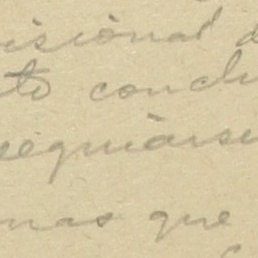 isional d
to conclu
seguiarse
nas que